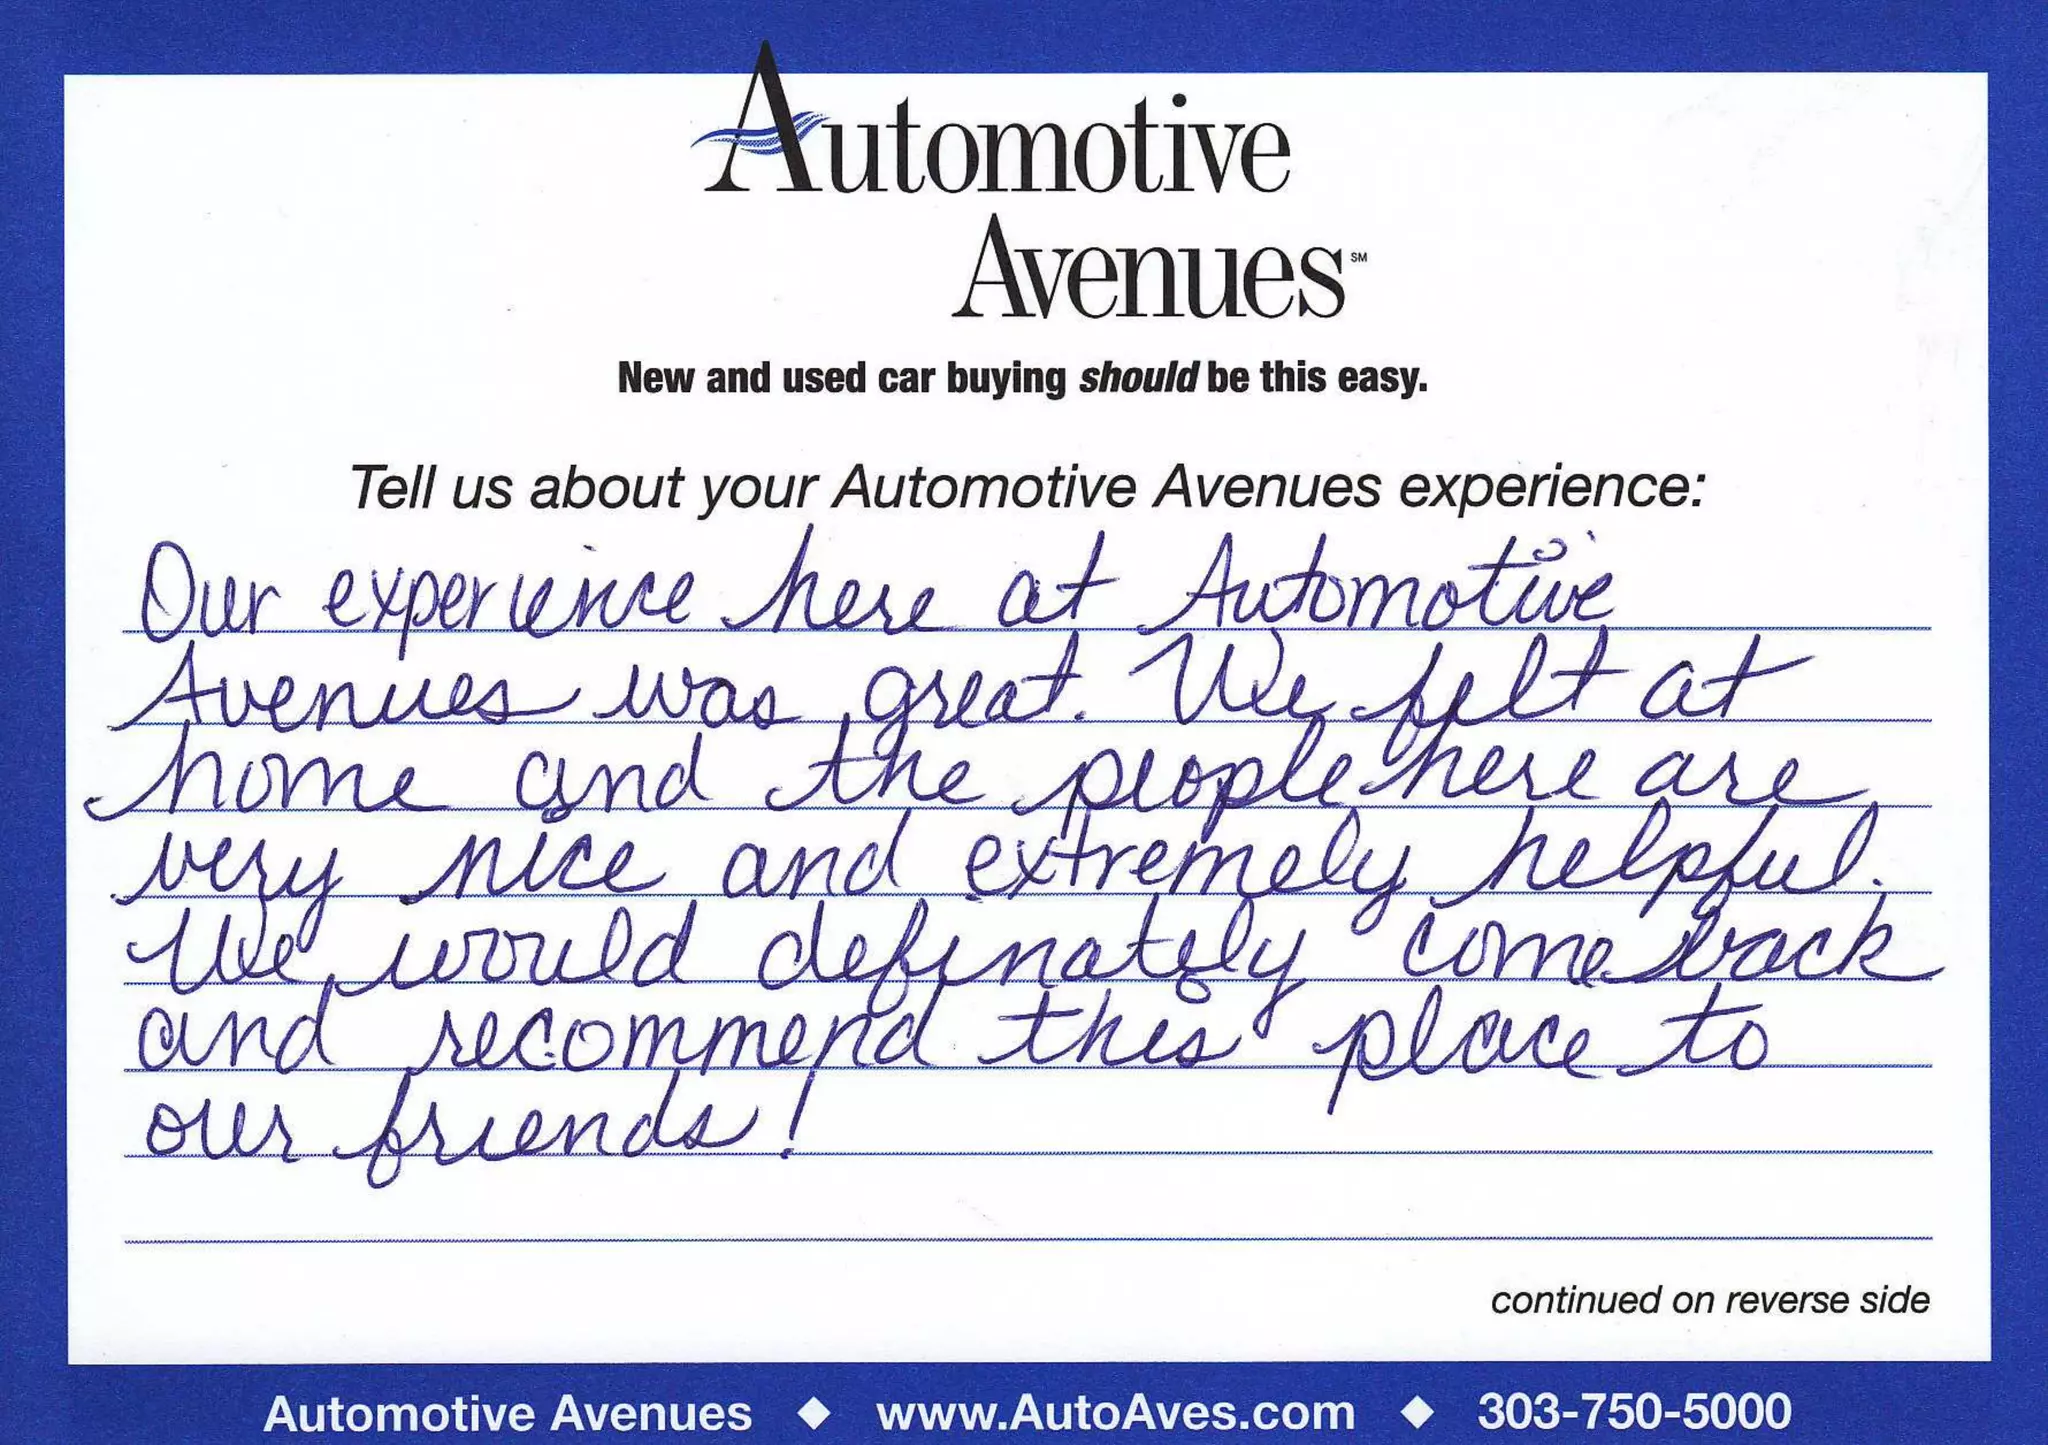 Automotive
Avenues℠
New and used car buying should be this easy.
Tell us about your Automotive Avenues experience:
Our experience here at Automotive
Avenues was great. We felt at
home and the people here are
very nice and extremely helpful.
We would definately come back
and recommend this place to
our friends!
continued on reverse side
Automotive Avenues ◆ www.AutoAves.com ◆ 303-750-5000